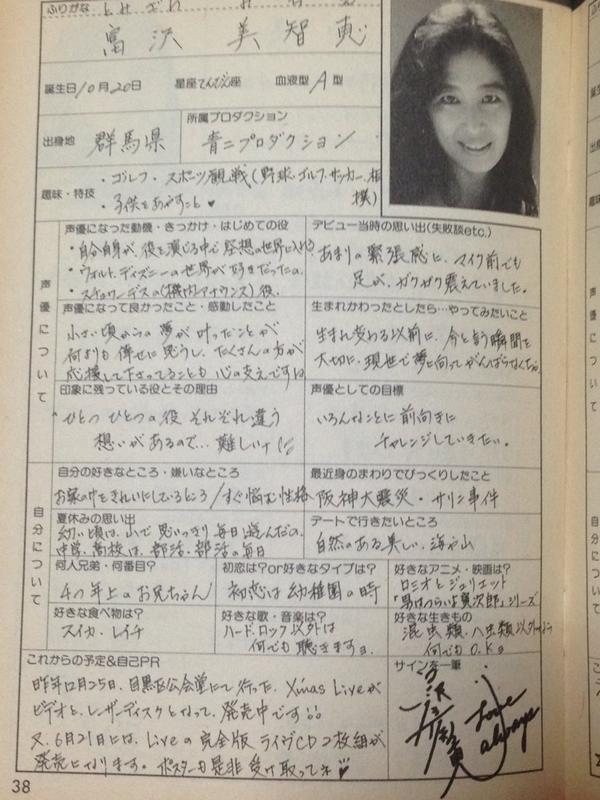 ふりがな とみざわ みちえ
富沢 美智恵
誕生日10月20日 星座てんびん座 血液型 A 型
出身地 群馬県
所属プロダクション
青二プロダクション
趣味・特技
・ゴルフ・スポーツ観戦(野球・ゴルフ・サッカー・相撲)
・子供をあやすこと♥
声優について
声優になった動機・きっかけ・はじめての役
・自分自身が、役を演じる中で空想の世界に入れる。
・ウォルト・ディズニーの世界が好きだったの。
・スチュワーデスの(機内アナウンス)役。
デビュー当時の思い出(失敗談etc.)
あまりの緊張感に、マイク前でも
足が、ガクガク震えていました。
声優になって良かったこと・感動したこと
小さい頃からの夢が叶ったことが
何よりも倖せに思うし、たくさんの方が
応援して下さってることも心の支えですね
生まれかわったとしたら…やってみたいこと
生まれ変わる以前に、今と言う瞬間を
大切に、現世で夢に向ってがんばらなくちゃ
印象に残っている役とその理由
ひとつひとつの役 それぞれ違う
想いがあるので… 難しいナ
声優としての目標
いろんなことに前向きに
チャレンジしていきたい。
自分について
自分の好きなところ・嫌いなところ
お家の中をきれいにしているところ/すぐ悩む性格
最近身のまわりでびっくりしたこと
阪神大震災・サリン事件
夏休みの思い出
幼い頃は、山で思いっきり毎日遊んだの。
中学、高校は、部活・部活の毎日
デートで行きたいところ
自然のある美しい海や山
何人兄弟・何番目?
4つ年上のお兄ちゃん
初恋は?or好きなタイプは?
初恋は幼稚園の時
好きなアニメ・映画は?
ロミオとジュリエット
「男はつらいよ寅次郎」シリーズ
好きな食べ物は?
スイカ・レイチ
好きな歌・音楽は?
ハード・ロック以外は
何でも聴きますョ
好きな生きもの
昆虫類、ハ虫類以外なら
何でもO.Kョ
これからの予定&自己PR
昨年12月25日、目黒区公会堂にて行った、Xmas Liveが
ビデオと、レーザーディスクとなって、発売中です!!
又、6月21日には、Liveの完全版 ライヴCD2枚組が
発売になります。ポスターも是非受け取ってネ♥
サインを一筆
富沢美智恵
Love always
38